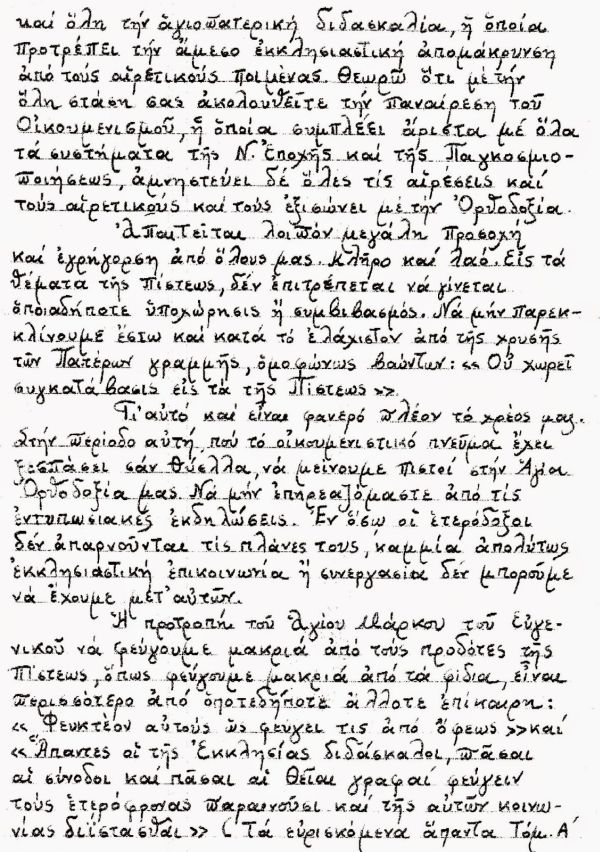 καί ὅλη τήν ἁγιοπατερική διδασκαλία, ἡ ὁποία
προτρέπει τήν ἄμεσο ἐκκλησιαστική ἀπομάκρυνση
ἀπό τούς αἱρετικούς ποιμένας. Θεωρῶ ὅτι μέ τήν
ὅλη στάση σας ἀκολουθεῖτε τήν Παναίρεση τοῦ
Οἰκουμενισμοῦ, ἡ ὁποία συμπλέει ἄριστα μέ ὅλα
τά συστήματα τῆς Ν. Ἐποχῆς καί τῆς Παγκοσμιο-
ποιήσεως, ἀμνηστεύει δέ ὅλες τίς αἱρέσεις καί
τούς αἱρετικούς καί τούς ἐξισώνει μέ τήν Ὀρθοδοξία.
Ἀπαιτεῖται λοιπόν μεγάλη προσοχή
καί ἐγρήγορση ἀπό ὅλους μας. Κλῆρο καί λαό. Εἰς τά
θέματα τῆς πίστεως, δέν ἐπιτρέπεται νά γίνεται
ὁποιαδήποτε ὑποχώρησις ἤ συμβιβασμός. Νά μήν παρεκ-
κλίνουμε ἔστω καί κατά τό ἐλάχιστον ἀπό τῆς χρυσῆς
τῶν Πατέρων γραμμῆς, ὁμοφώνως βοώντων: «Οὐ χωρεῖ
συγκατάβασις εἰς τά τῆς Πίστεως».
Γι' αὐτό καί εἶναι φανερό πλέον τό χρέος μας.
Στήν περίοδο αὐτή, πού τό οἰκουμενιστικό πνεῦμα ἔχει
ξεσπάσει σάν θύελλα, νά μείνουμε πιστοί στήν Ἁγία
Ὀρθοδοξία μας. Νά μήν ἐπηρεαζόμαστε ἀπό τίς
ἐντυπωσιακές ἐκδηλώσεις. Ἐν ὅσῳ οἱ ἑτερόδοξοι
δέν ἀπαρνοῦνται τίς πλάνες τους, καμμία ἀπολύτως
ἐκκλησιαστική ἐπικοινωνία ἤ συνεργασία δέν μποροῦμε
νά ἔχουμε μετ' αὐτῶν.
Ἡ προτροπή τοῦ Ἁγίου Μάρκου τοῦ Εὐγε-
νικοῦ νά φεύγουμε μακριά ἀπό τούς προδότες τῆς
Πίστεως, ὅπως φεύγουμε μακριά ἀπό τά φίδια, εἶναι
περισσότερο ἀπό ὁποτεδήποτε ἄλλοτε ἐπίκαιρη:
« Φευκτέον αὐτούς ὡς φεύγει τις ἀπό ὄφεως » καί
« Ἅπαντες οἱ τῆς Ἐκκλησίας διδάσκαλοι, πᾶσαι
αἱ σύνοδοι καί πᾶσαι αἱ θεῖαι γραφαί φεύγειν
τούς ἑτερόφρονας παραινοῦσι καί τῆς αὐτῶν κοινω-
νίας διΐστασθαι » ( Τά εὑρισκόμενα ἅπαντα Τόμ. Α΄